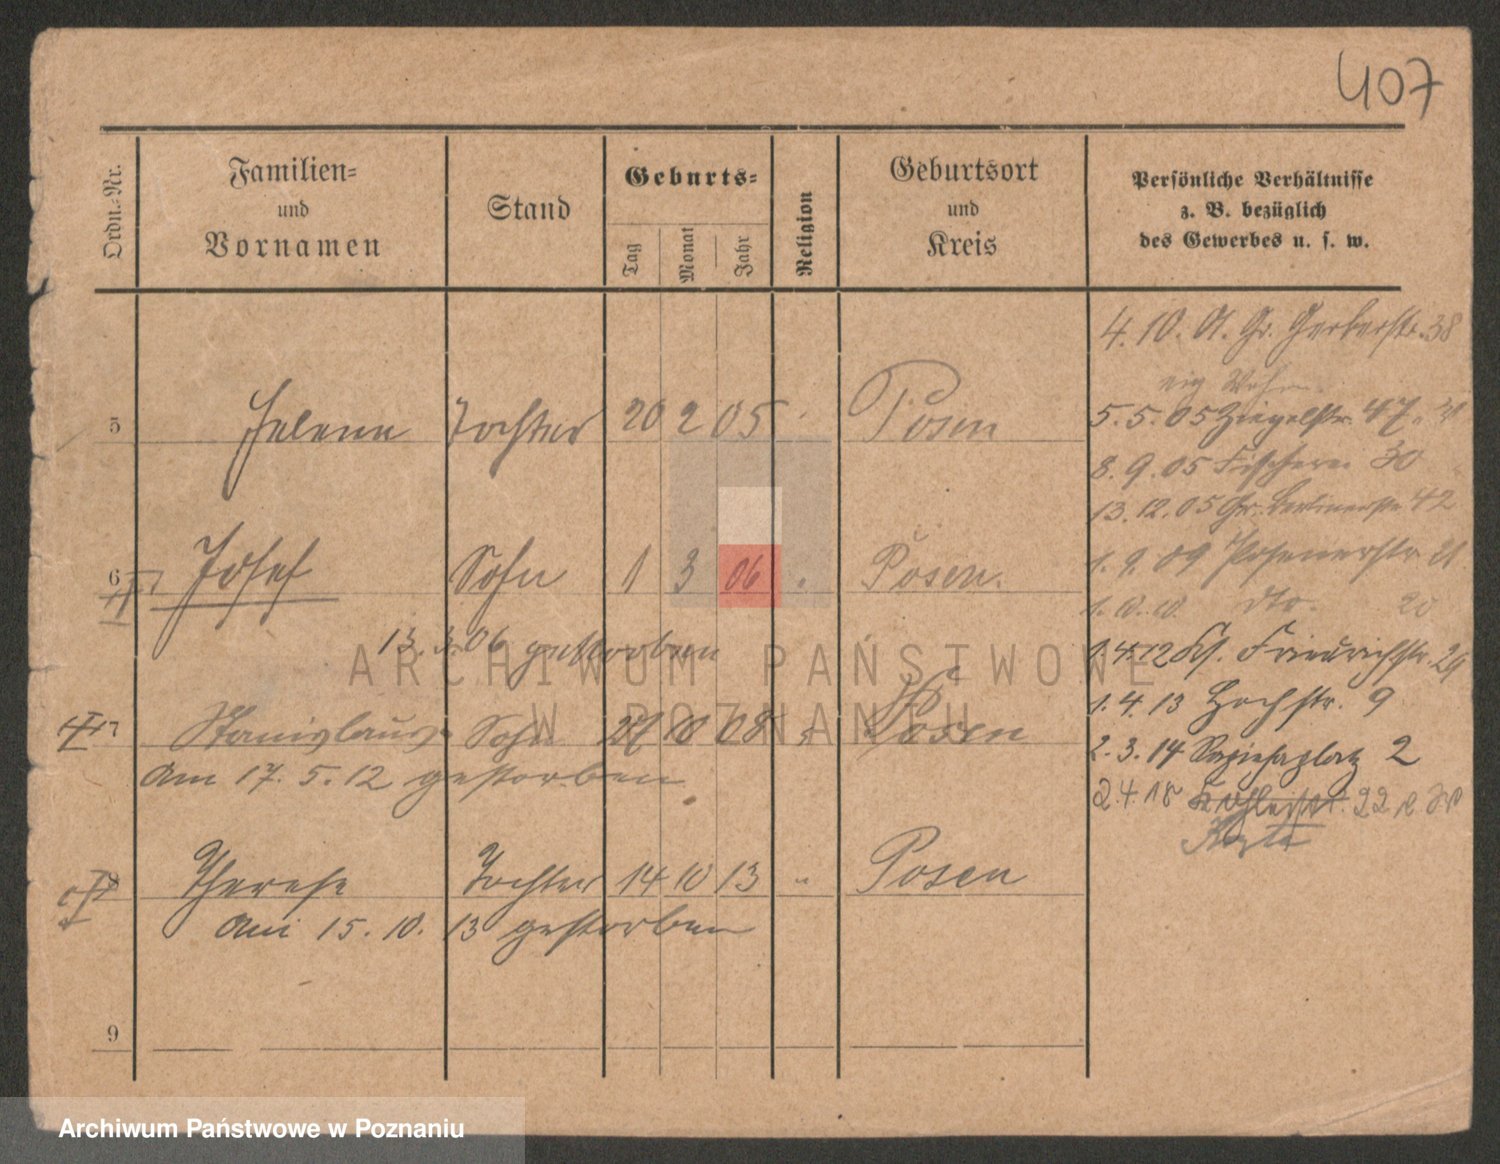 407
Ordn.-Nr.
Familien-
und
Vornamen
Stand
Geburts-
Tag
Monat
Jahr
Religion
Geburtsort
und
Kreis
Persönliche Verhältnisse
z. B. bezüglich
des Gewerbes u. s. w.
4. 10. 01. Gr. Gerberstr. 38
eig Wohn.
5 Helena Tochter 20 2 05 Posen
5. 5. 05 Ziegelstr. 47
8. 9. 05 Fischerei 30
13. 12. 05 Gr. Berlinerstr. 42
6 Josef Sohn 1 3 06 Posen.
1. 9. 09 Posenerstr. 21
dto. 20
13. 3. 06 gestorben
4. 12 Friedrichstr. 29
1. 4. 13 Hochstr. 9
7 Stanislaus Sohn 10 08 Posen
2. 3. 14 Sapiehaplatz 2
am 17. 5. 12 gestorben
2. 4. 18 22
8 Therese Tochter 14 10 13 " Posen
am 15. 10. 13 gestorben
9
ARCHIWUM PAŃSTWOWE
W POZNANIU
Archiwum Państwowe w Poznaniu